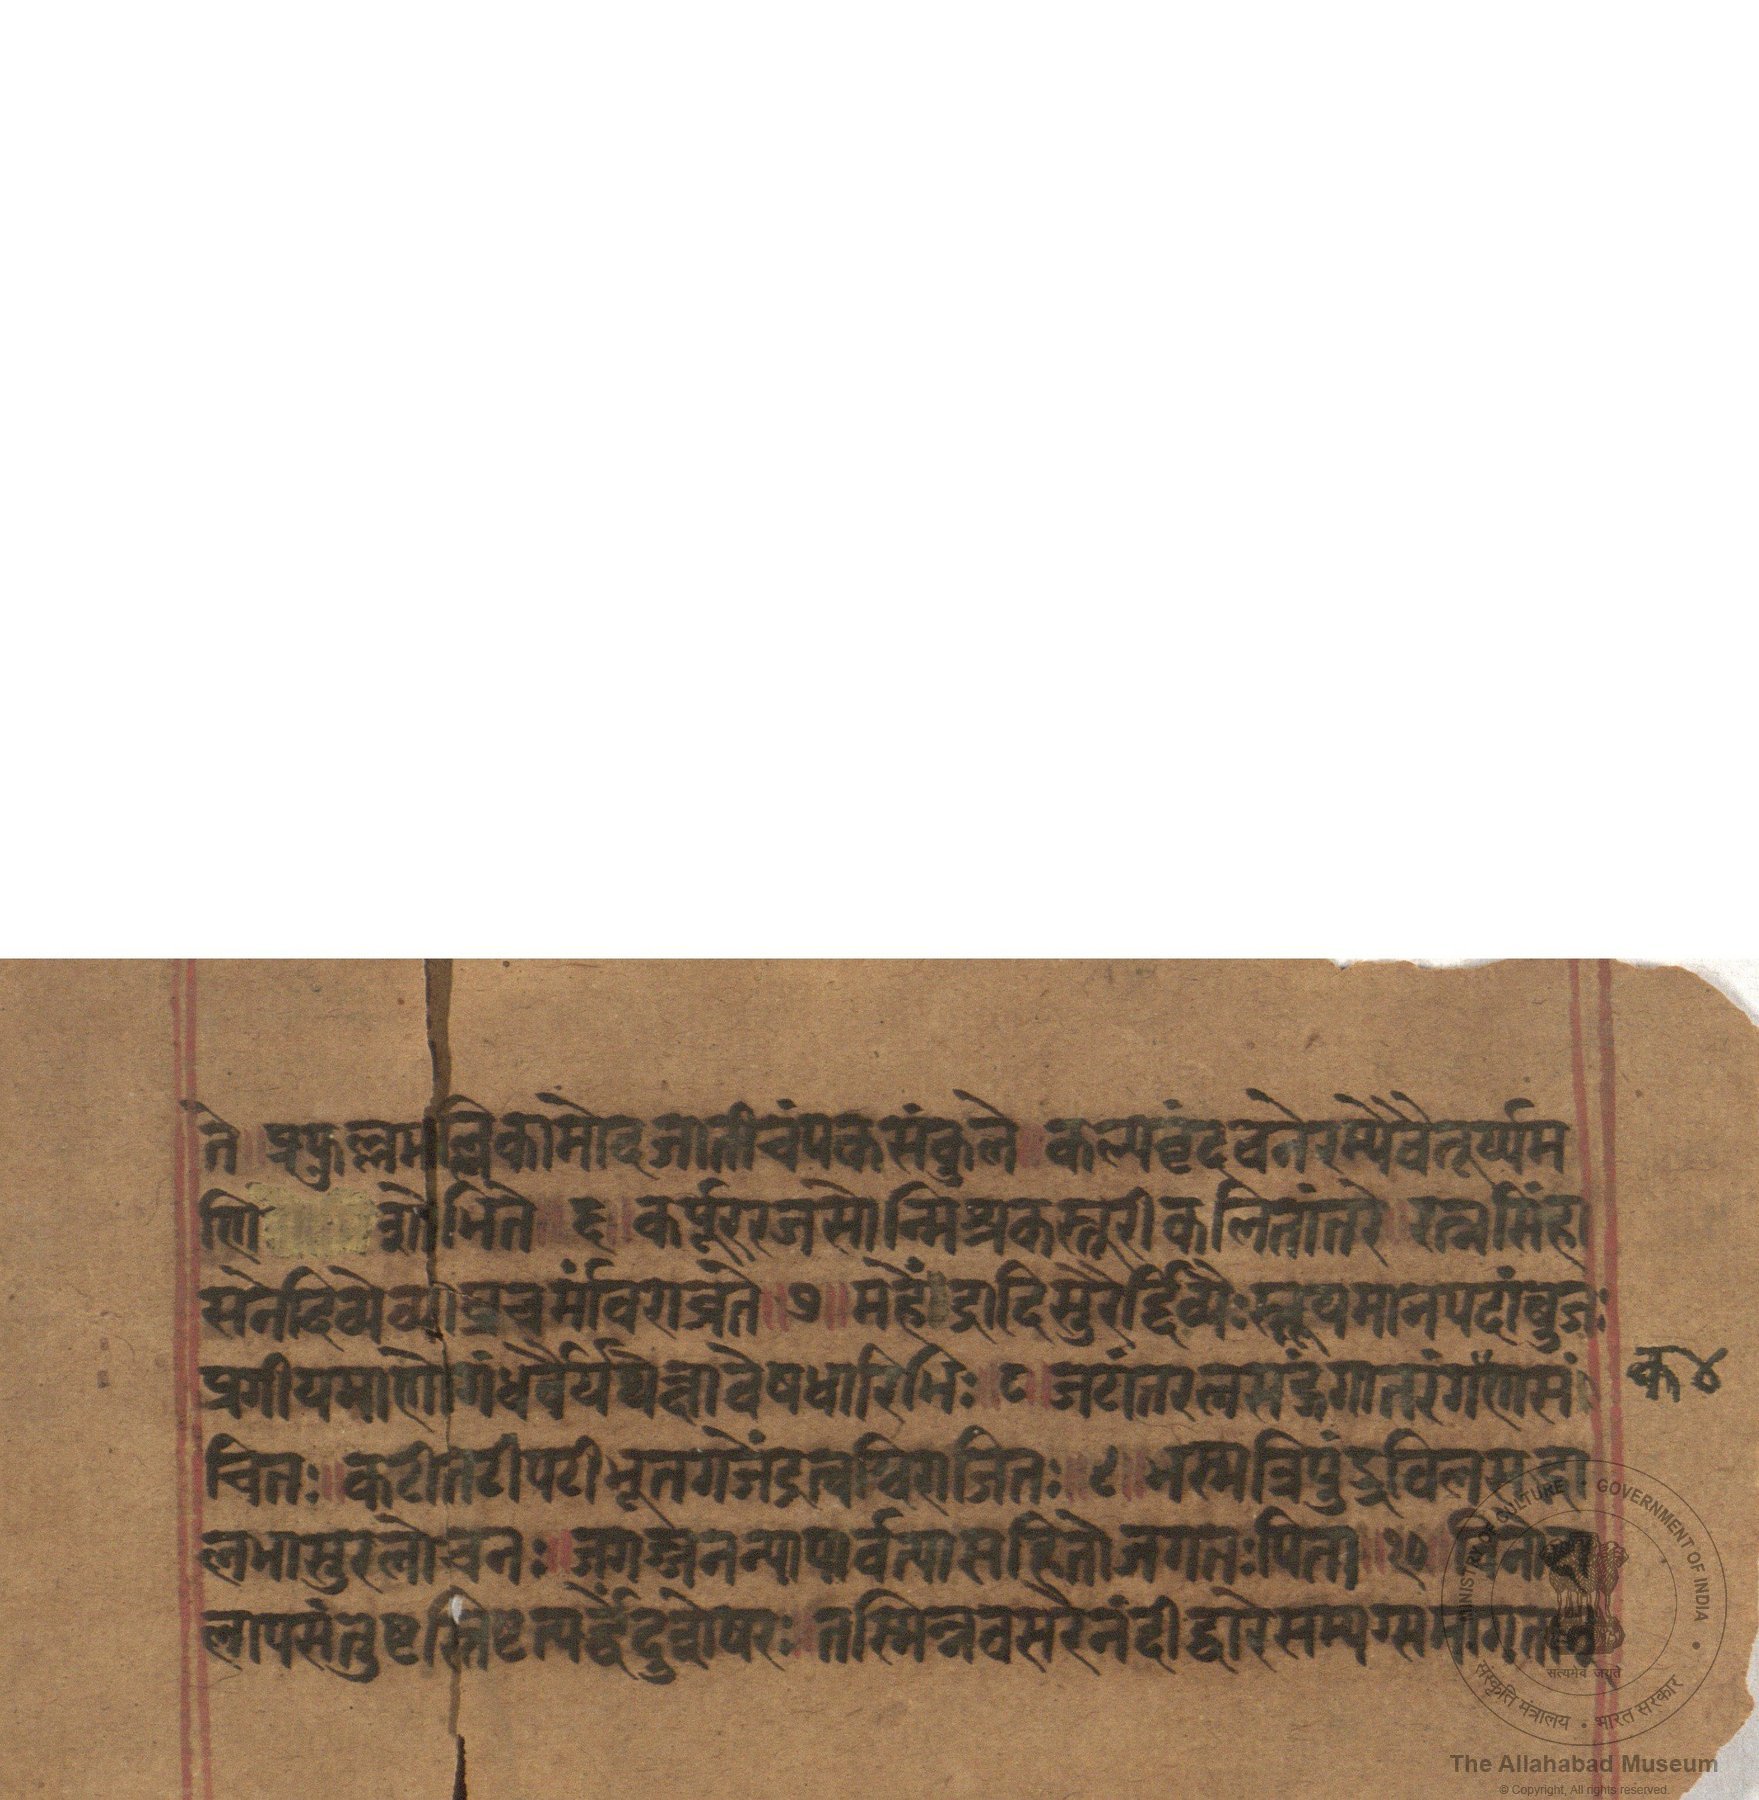 ते ॥ प्रफुल्लमल्लिकामोदजातीचंपकसंकुले ॥ कल्पवृंदवनेरम्येवैतूर्य्यम
णि शोभिते ॥ ६ ॥ कर्पूररजसोन्मिश्रकस्तूरीकलितांतरे ॥ रत्नसिंहा
सनेदिव्येव्याघ्रचर्मविराजते ॥ ७ ॥ महेंद्रादिसुरैर्द्दिव्यैःस्तूयमानपदांबुजः
प्रगीयमाणोगंधर्वैर्य वेषधारिभिः ॥ ८ ॥ जटांतरलसद्गंगातरंगगणसं
चितः ॥ कटीतटीपटीभूतगजेंद्रत्वग्विराजितः ॥ ९ ॥ भस्मत्रिपुंड्रविलसद्भा
लभासुरलोचनः ॥ जगज्जनन्यापार्वत्यासहितोजगतःपिता ॥ १० ॥
लापसंतुष्ट तस्मिन्नवसरेनंदीद्वारेसम्यग्समागतान्
क ४
MINISTRY OF CULTURE • GOVERNMENT OF INDIA
सत्यमेव जयते
संस्कृति मंत्रालय • भारत सरकार
The Allahabad Museum
© Copyright, All rights reserved.